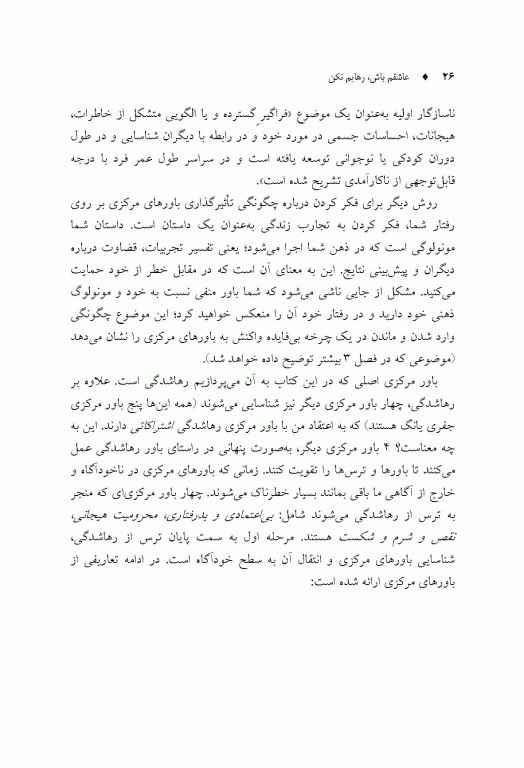 ۲۶ ♦ عاشقم باش، رهایم نکن
ناسازگار اولیه به‌عنوان یک موضوع «فراگیرِ گسترده و یا الگویی متشکل از خاطرات،
هیجانات، احساسات جسمی در مورد خود و در رابطه با دیگران شناسایی و در طول
دوران کودکی یا نوجوانی توسعه یافته است و در سراسر طول عمر فرد با درجه
قابل‌توجهی از ناکارآمدی تشریح شده است».
روش دیگر برای فکر کردن درباره چگونگی تأثیرگذاری باورهای مرکزی بر روی
رفتار شما، فکر کردن به تجارب زندگی به‌عنوان یک داستان است. داستان شما
مونولوگی است که در ذهن شما اجرا می‌شود؛ یعنی تفسیر تجربیات، قضاوت درباره
دیگران و پیش‌بینی نتایج. این به معنای آن است که در مقابل خطر از خود حمایت
می‌کنید. مشکل از جایی ناشی می‌شود که شما باور منفی نسبت به خود و مونولوگ
ذهنی خود دارید و در رفتار خود آن را منعکس خواهید کرد؛ این موضوع چگونگی
وارد شدن و ماندن در یک چرخه بی‌فایده واکنش به باورهای مرکزی را نشان می‌دهد
(موضوعی که در فصل ۳ بیشتر توضیح داده خواهد شد).
باور مرکزی اصلی که در این کتاب به آن می‌پردازیم رهاشدگی است. علاوه بر
رهاشدگی، چهار باور مرکزی دیگر نیز شناسایی می‌شوند (همه این‌ها پنج باور مرکزی
جفری یانگ هستند) که به اعتقاد من با باور مرکزی رهاشدگی اشتراکاتی دارند. این به
چه معناست؟ ۴ باور مرکزی دیگر، به‌صورت پنهانی در راستای باور رهاشدگی عمل
می‌کنند تا باورها و ترس‌ها را تقویت کنند. زمانی که باورهای مرکزی در ناخودآگاه و
خارج از آگاهی ما باقی بمانند بسیار خطرناک می‌شوند. چهار باور مرکزی‌ای که منجر
به ترس از رهاشدگی می‌شوند شامل: بی‌اعتمادی و بدرفتاری، محرومیت هیجانی،
نقص و شرم و شکست هستند. مرحله اول به سمت پایان ترس از رهاشدگی،
شناسایی باورهای مرکزی و انتقال آن به سطح خودآگاه است. در ادامه تعاریفی از
باورهای مرکزی ارائه شده است: